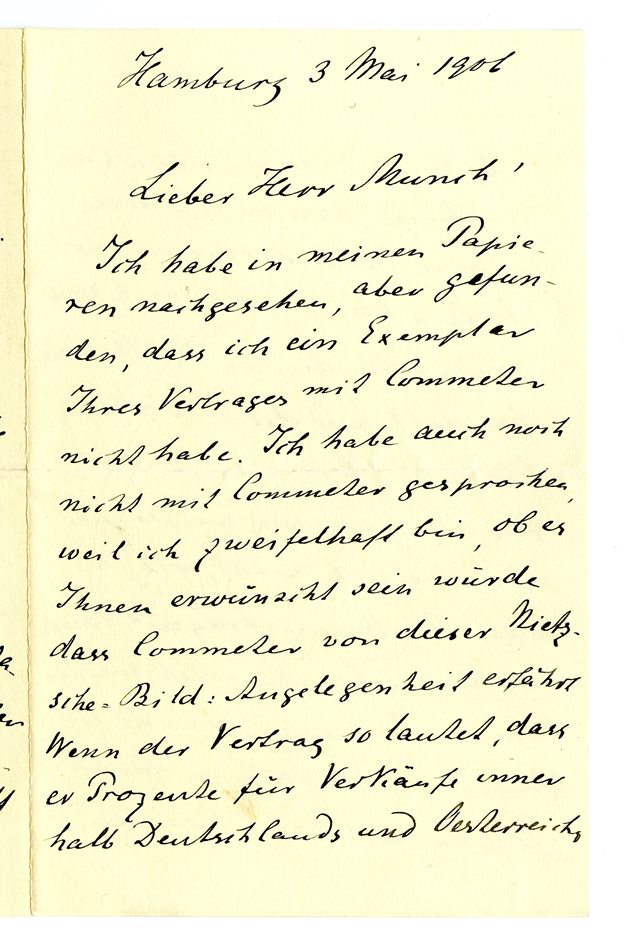 Hamburg 3 Mai 1906
Lieber Herr Munch!
Ich habe in meinen Papie-
ren nachgesehen, aber gefun-
den, dass ich ein Exemplar
Ihres Vertrages mit Commeter
nicht habe. Ich habe auch noch
nicht mit Commeter gesprochen,
weil ich zweifelhaft bin, ob es
Ihnen erwünscht sein würde
dass Commeter von dieser Nietz-
sche-Bild-Angelegenheit erfährt
Wenn der Vertrag so lautet, dass
er Prozente für Verkäufe inner
halb Deutschlands und Oesterreichs